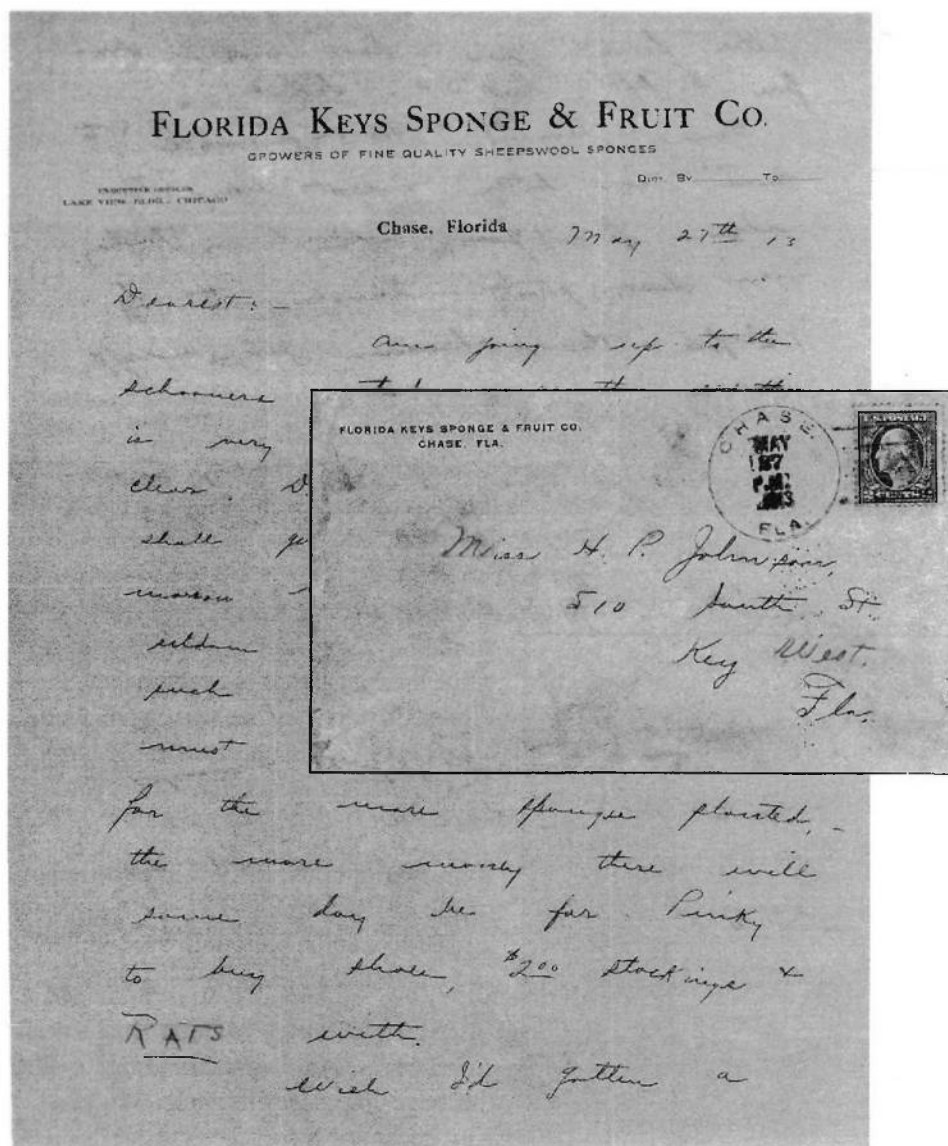 FLORIDA KEYS SPONGE & FRUIT CO.
GROWERS OF FINE QUALITY SHEEPSWOOL SPONGES
Dict. By To
EXECUTIVE OFFICES
LAKE VIEW BLDG., CHICAGO
Chase, Florida May 27th 13
Dearest: -
Am going up to the
schooners the
is very
clear. D
shall
morrow
seldom
such
must
for the more sponges planted, -
the more money there will
some day be for Pinky
to buy shoes, $2.00 stockings &
RATS with.
Wish I'd gotten a
FLORIDA KEYS SPONGE & FRUIT CO.
CHASE, FLA.
CHASE.
MAY
27
P.M.
1913
FLA.
U.S. POSTAGE
Miss H. P. Johnson,
510 South St
Key West.
Fla.